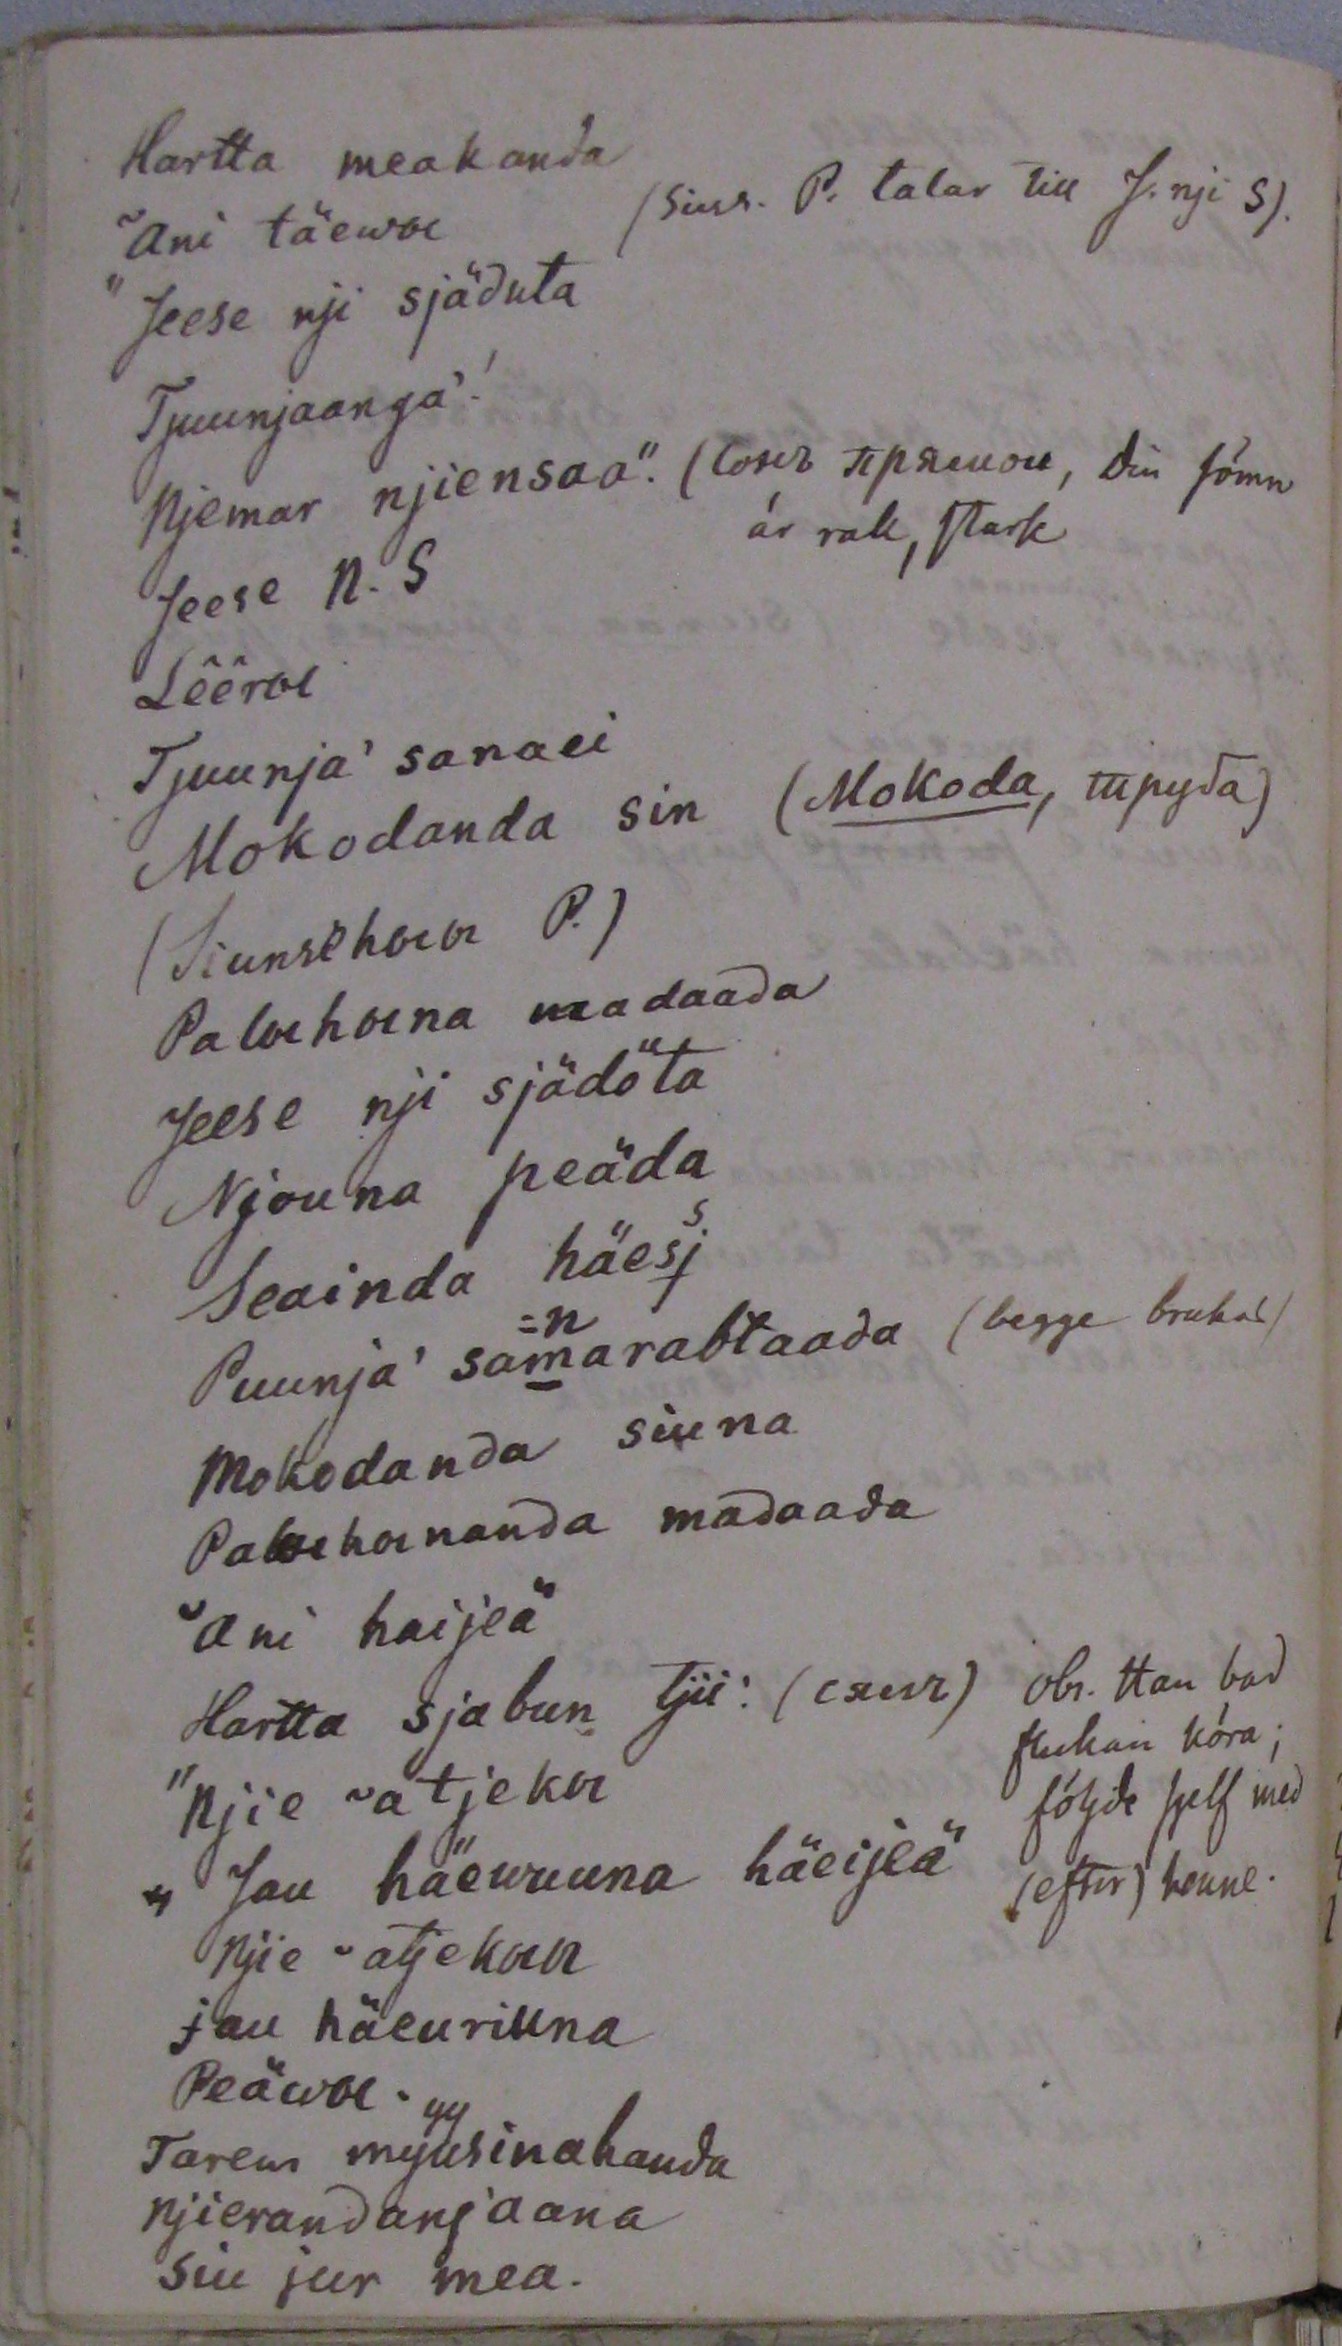 Hartta meakanda
˘ani täewoe (Siuns. P. talar till J. nji S).
"Jeese nji sjäduta
Tjuunjaanga'!
Njemar njiensaa". (сонъ прямои, din sömn
är rak, stark
Jeese N. S
Lêêroe
Tjuunja' sanaei
Mokodanda sin (Mokoda, труда)
(Siunsehoeoe P.)
Paloehoena madaada
Jeese nji sjädöta
Njouna peäda
s
Seainda häesj
=n
Puunja' samarabtaada (begge brukas)
Mokodanda siuna
Paloehoenanda madaada
˘ani haijeä
Hartta sjabun tjii: (сямъ) obs. Han bad
flickan köra;
"Njie ˘atjekoe följde sjelf med
" Jau häewuuna häeijeä (efter) henne.
Njie ˘atjekoeoe
jau häeuriuna
Peäwoe.
yy
Tarem myüsinahanda
njierandanjaana
siu jur mea.